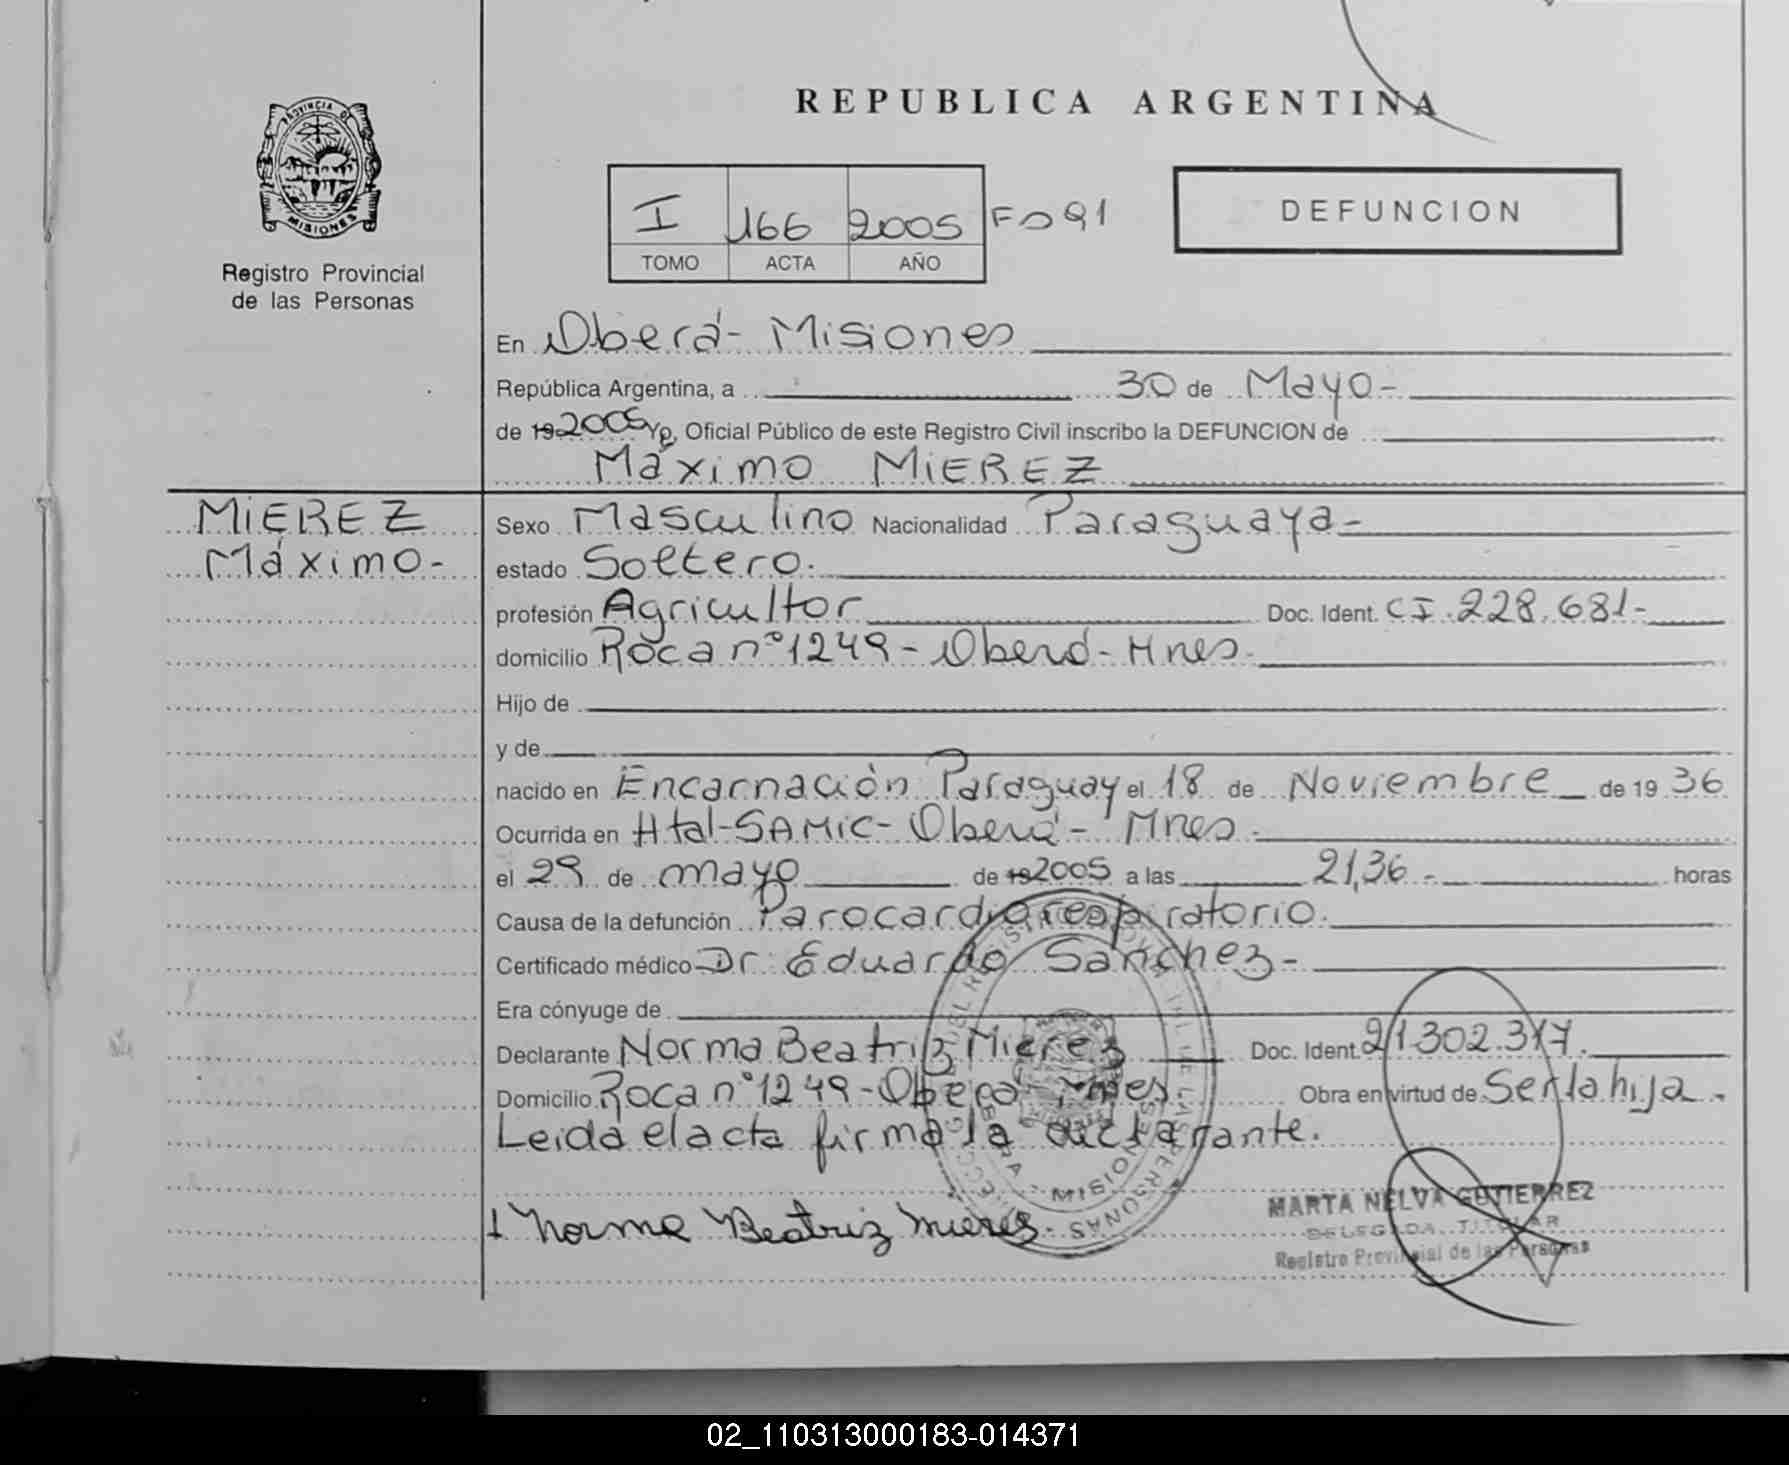 REPUBLICA ARGENTINA
PROVINCIA DE
MISIONES
Registro Provincial
de las Personas
I 166 2005 Fo 91
TOMO ACTA AÑO
DEFUNCION
En Oberá - Misiones
República Argentina, a 30 de Mayo -
de 19 2005 Yo, Oficial Público de este Registro Civil inscribo la DEFUNCION de
Máximo MiEREZ
MiEREZ
Máximo -
Sexo Masculino Nacionalidad Paraguaya -
estado Soltero.
profesión Agricultor Doc. Ident. CI. 228.681 -
domicilio Roca nº 1249 - Oberá - Mnes.
Hijo de
y de
nacido en Encarnación Paraguay el 18 de Noviembre de 19 36
Ocurrida en Htal - SAMIC - Oberá - Mnes.
el 29 de mayo de 19 2005 a las 21,36 - horas
Causa de la defunción Parocardiorespiratorio.
Certificado médico Dr. Eduardo Sanchez -
Era cónyuge de
Declarante Norma Beatriz Mierez Doc. Ident. 21.302.317.
Domicilio Roca nº 1249 - Oberá Mnes. Obra en virtud de Ser la hija -
Leida el acta firma la declarante.
Norma Beatriz Mierez.
MARTA NELVA GUTIERREZ
DELEGADA TITULAR
Registro Provincial de las Personas
02_110313000183-014371